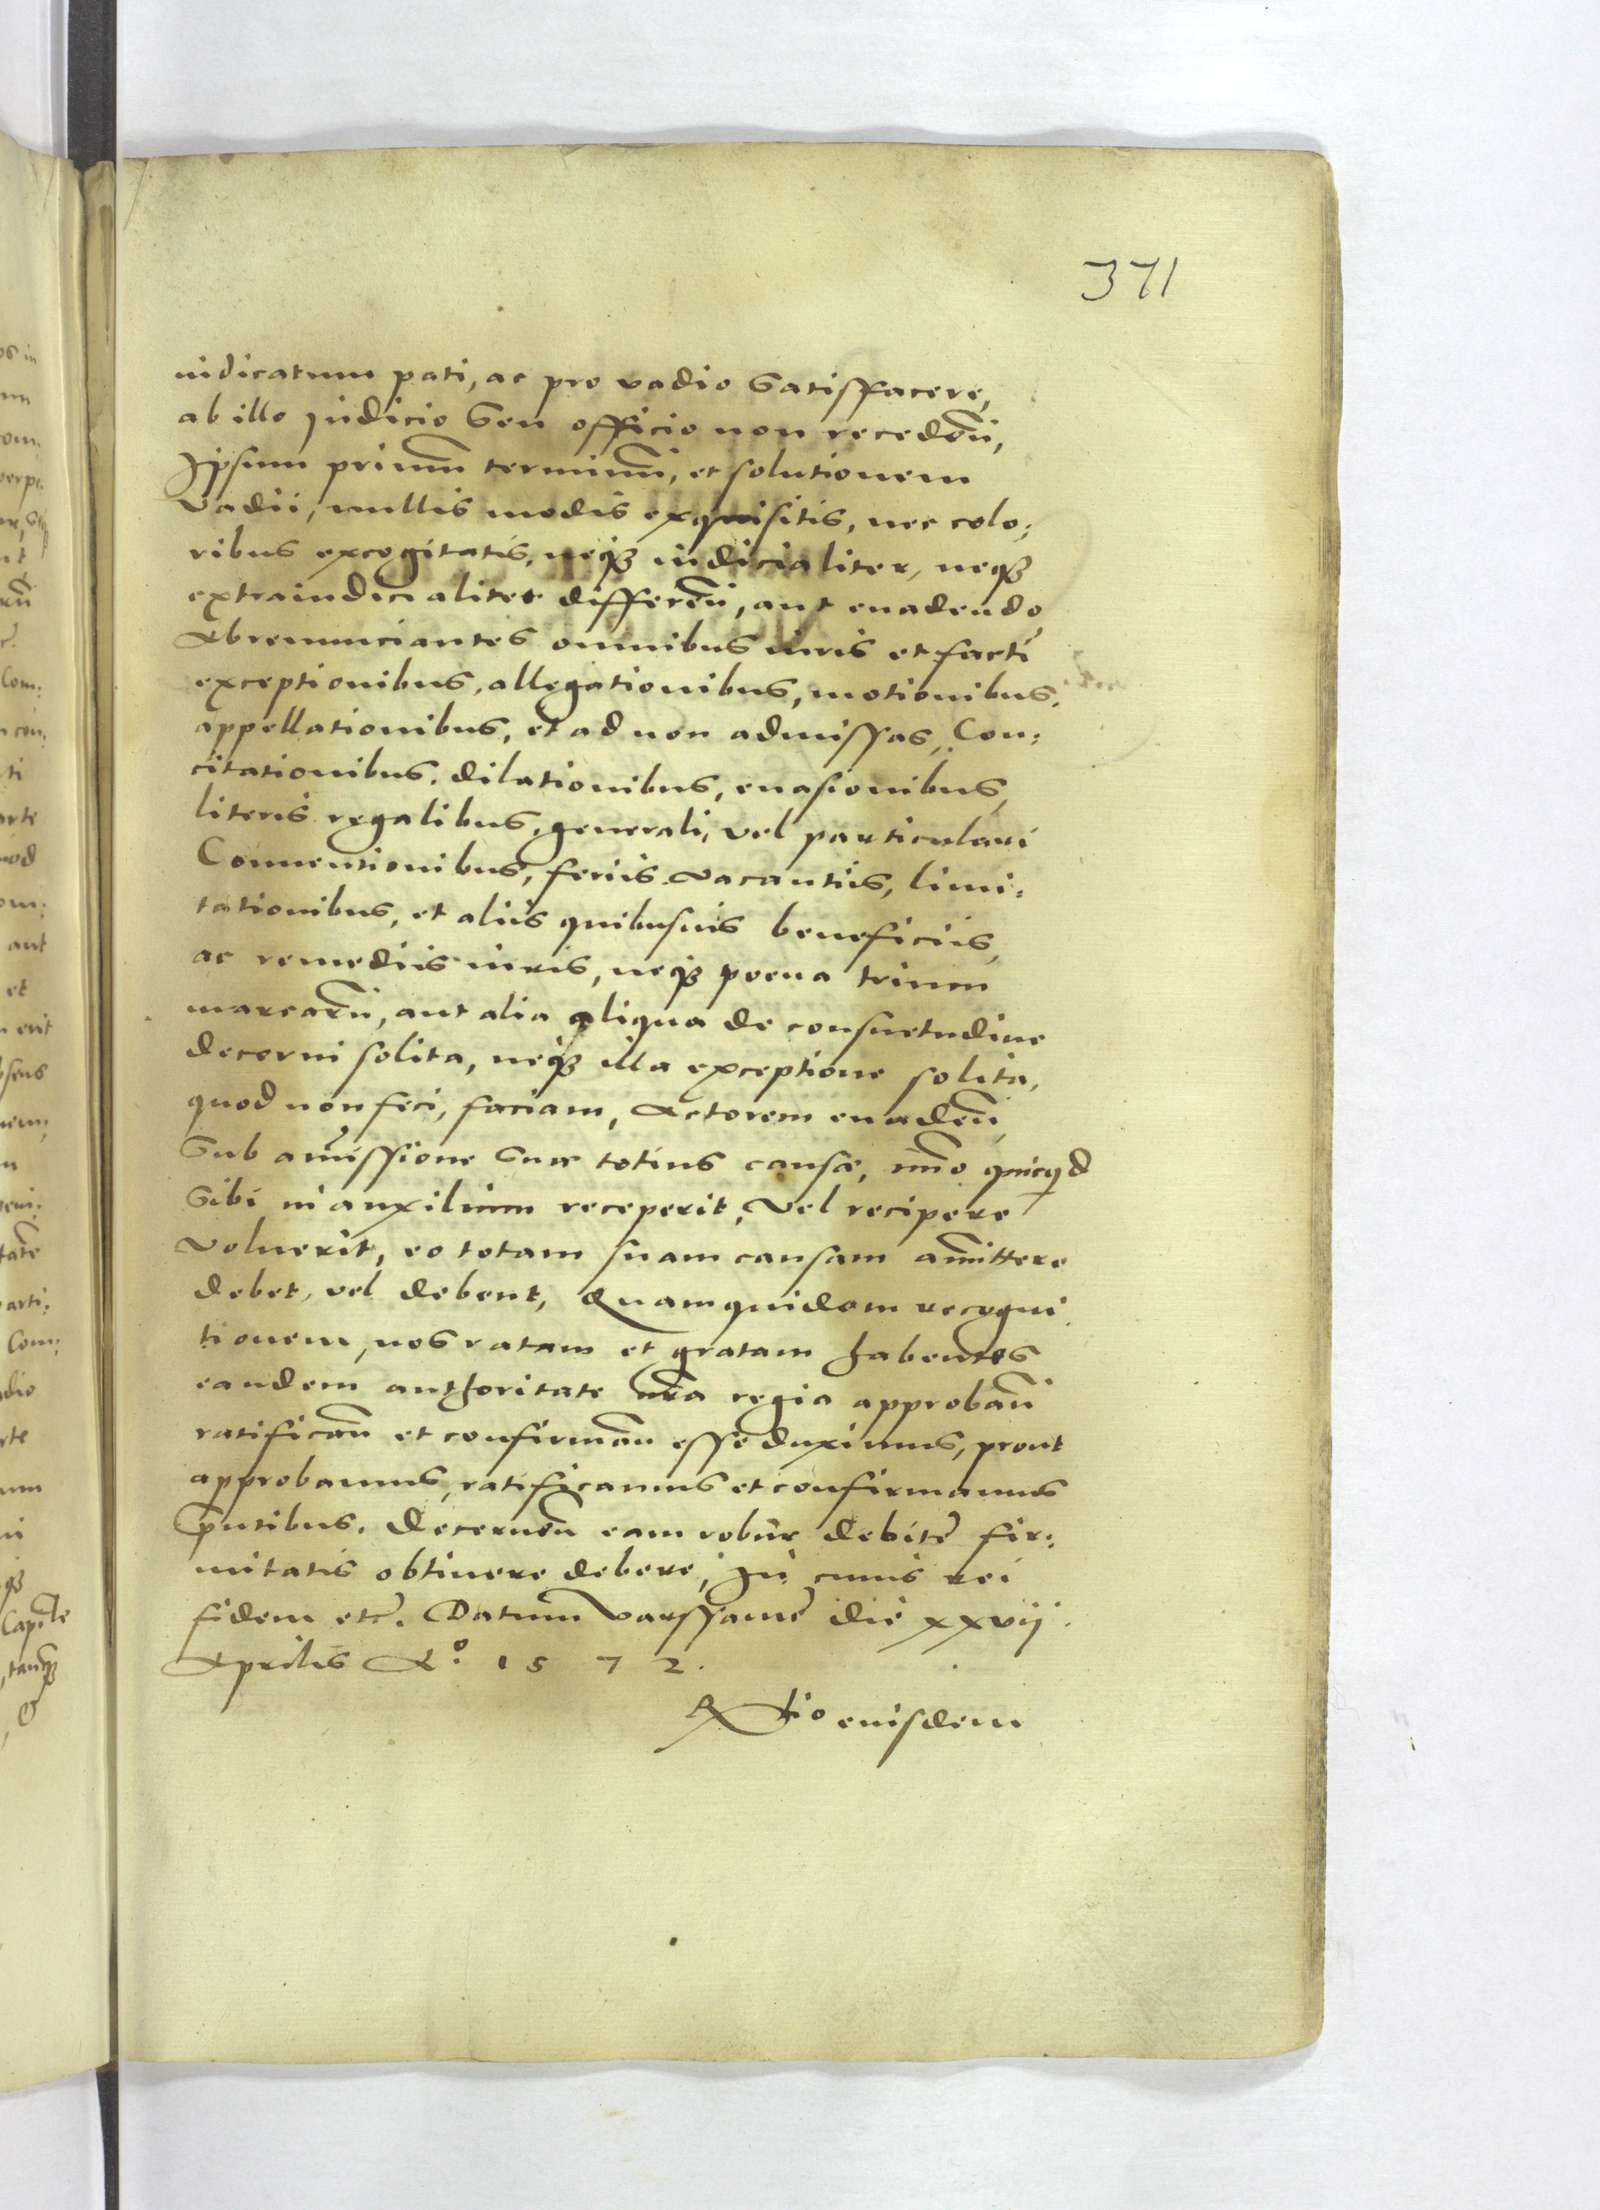 371
iudicatum pati, ac pro vadio satisffacere,
ab illo Judicio seu officio non recedeñ,
Ipsum primũ terminũ, et solutionem
vadii, nullis modis exquisitis, nec colo:
ribus excogitatis, neqз iudicialiter, neqз
extraiudicialiter differeñ, aut euadendo
Abrenunciantes omnibus iuris et facti
exceptionibus, allegationibus, motionibus,
appellationibus, et ad non admissas, Con:
citationibus, dilationibus, euasionibus,
literis regalibus, generali, vel particulari
Conuentionibus, feriis vacantiis, limi:
tationibus, et aliis quibusuis beneficiis,
ac remediis iuris, neqз poena trium
marcarũ, aut alia aliqua de consuetudine
decerni solita, neqз illa exceptione solita,
quod non feci, faciam, Actorem euadeñ,
Sub amissione suae totius causae, im̃o quicqd
Sibi in auxilium receperit, vel recipere
voluerit, eo totam suam causam amittere
debet, vel debent, Quamquidem recogni
tionem, nos ratam et gratam habentes
eandem authoritate nr̃a regia approbañ
ratificañ et confirmañ esse duximus, prout
approbamus, ratificamus et confirmamus
p̃ntibus. Decerneñ eam robur debite fir:
mitatis obtinere debere, In cuius rei
fidem etc. Datum Varssauie die xxvij
Aprilis Aº. 1572.
Rtio eiusdem